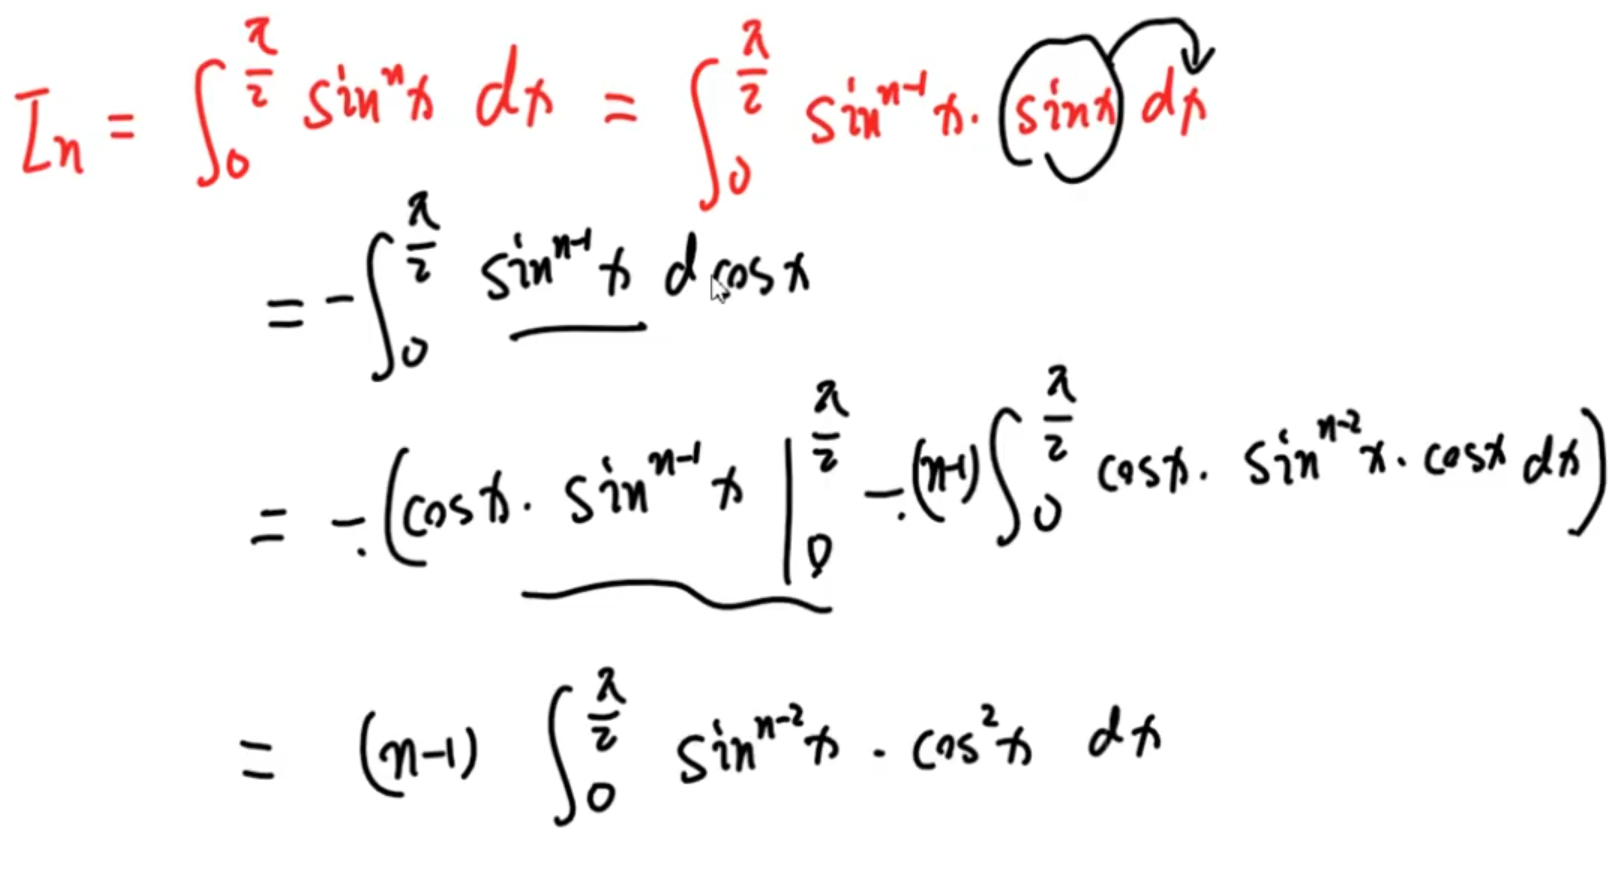 Iₙ = ∫₀^(π/2) sinⁿx dx = ∫₀^(π/2) sinⁿ⁻¹x · sinx dx
= -∫₀^(π/2) sinⁿ⁻¹x dcosx
= -(cosx · sinⁿ⁻¹x |₀^(π/2) - (n-1)∫₀^(π/2) cosx · sinⁿ⁻²x · cosx dx)
= (n-1) ∫₀^(π/2) sinⁿ⁻²x · cos²x dx